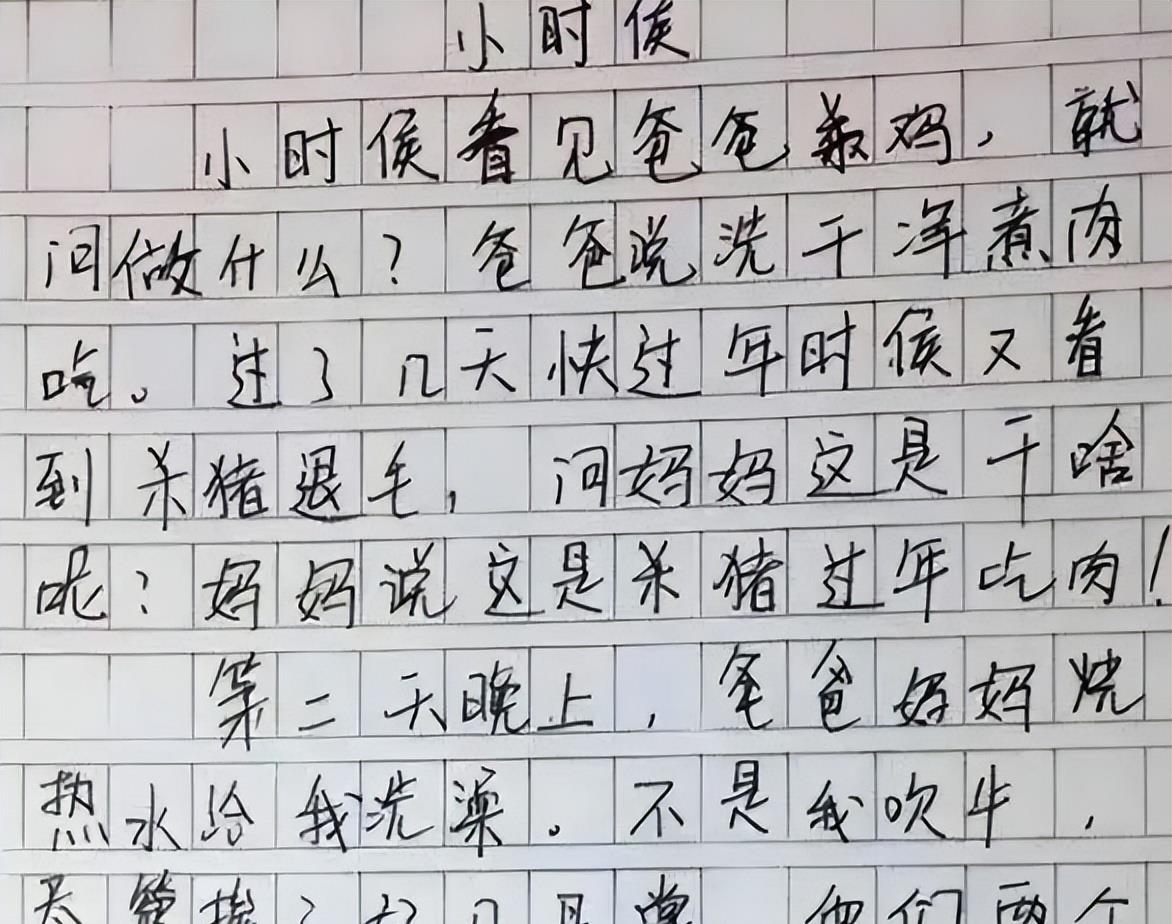 小时侯
小时侯看见爸爸杀鸡，就
问做什么？爸爸说洗干净煮肉
吃。过了几天快过年时侯又看
到杀猪退毛，问妈妈这是干啥
呢？妈妈说这是杀猪过年吃肉！
第二天晚上，爸爸妈妈烧
热水给我洗澡。不是我吹牛，
他们两个